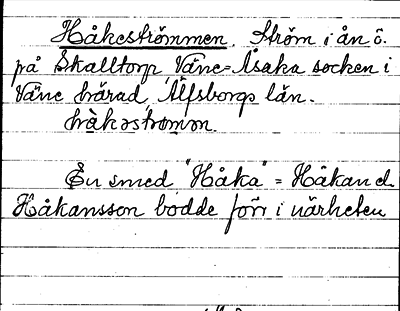 Håkeströmmen. Ström i ån ö.
på Skalltorp, Väne-Åsaka socken i
Väne härad, Älfsborgs län.
hràkostrømmon.
En smed "Håka" = Håkan el.
Håkansson bodde förr i närheten